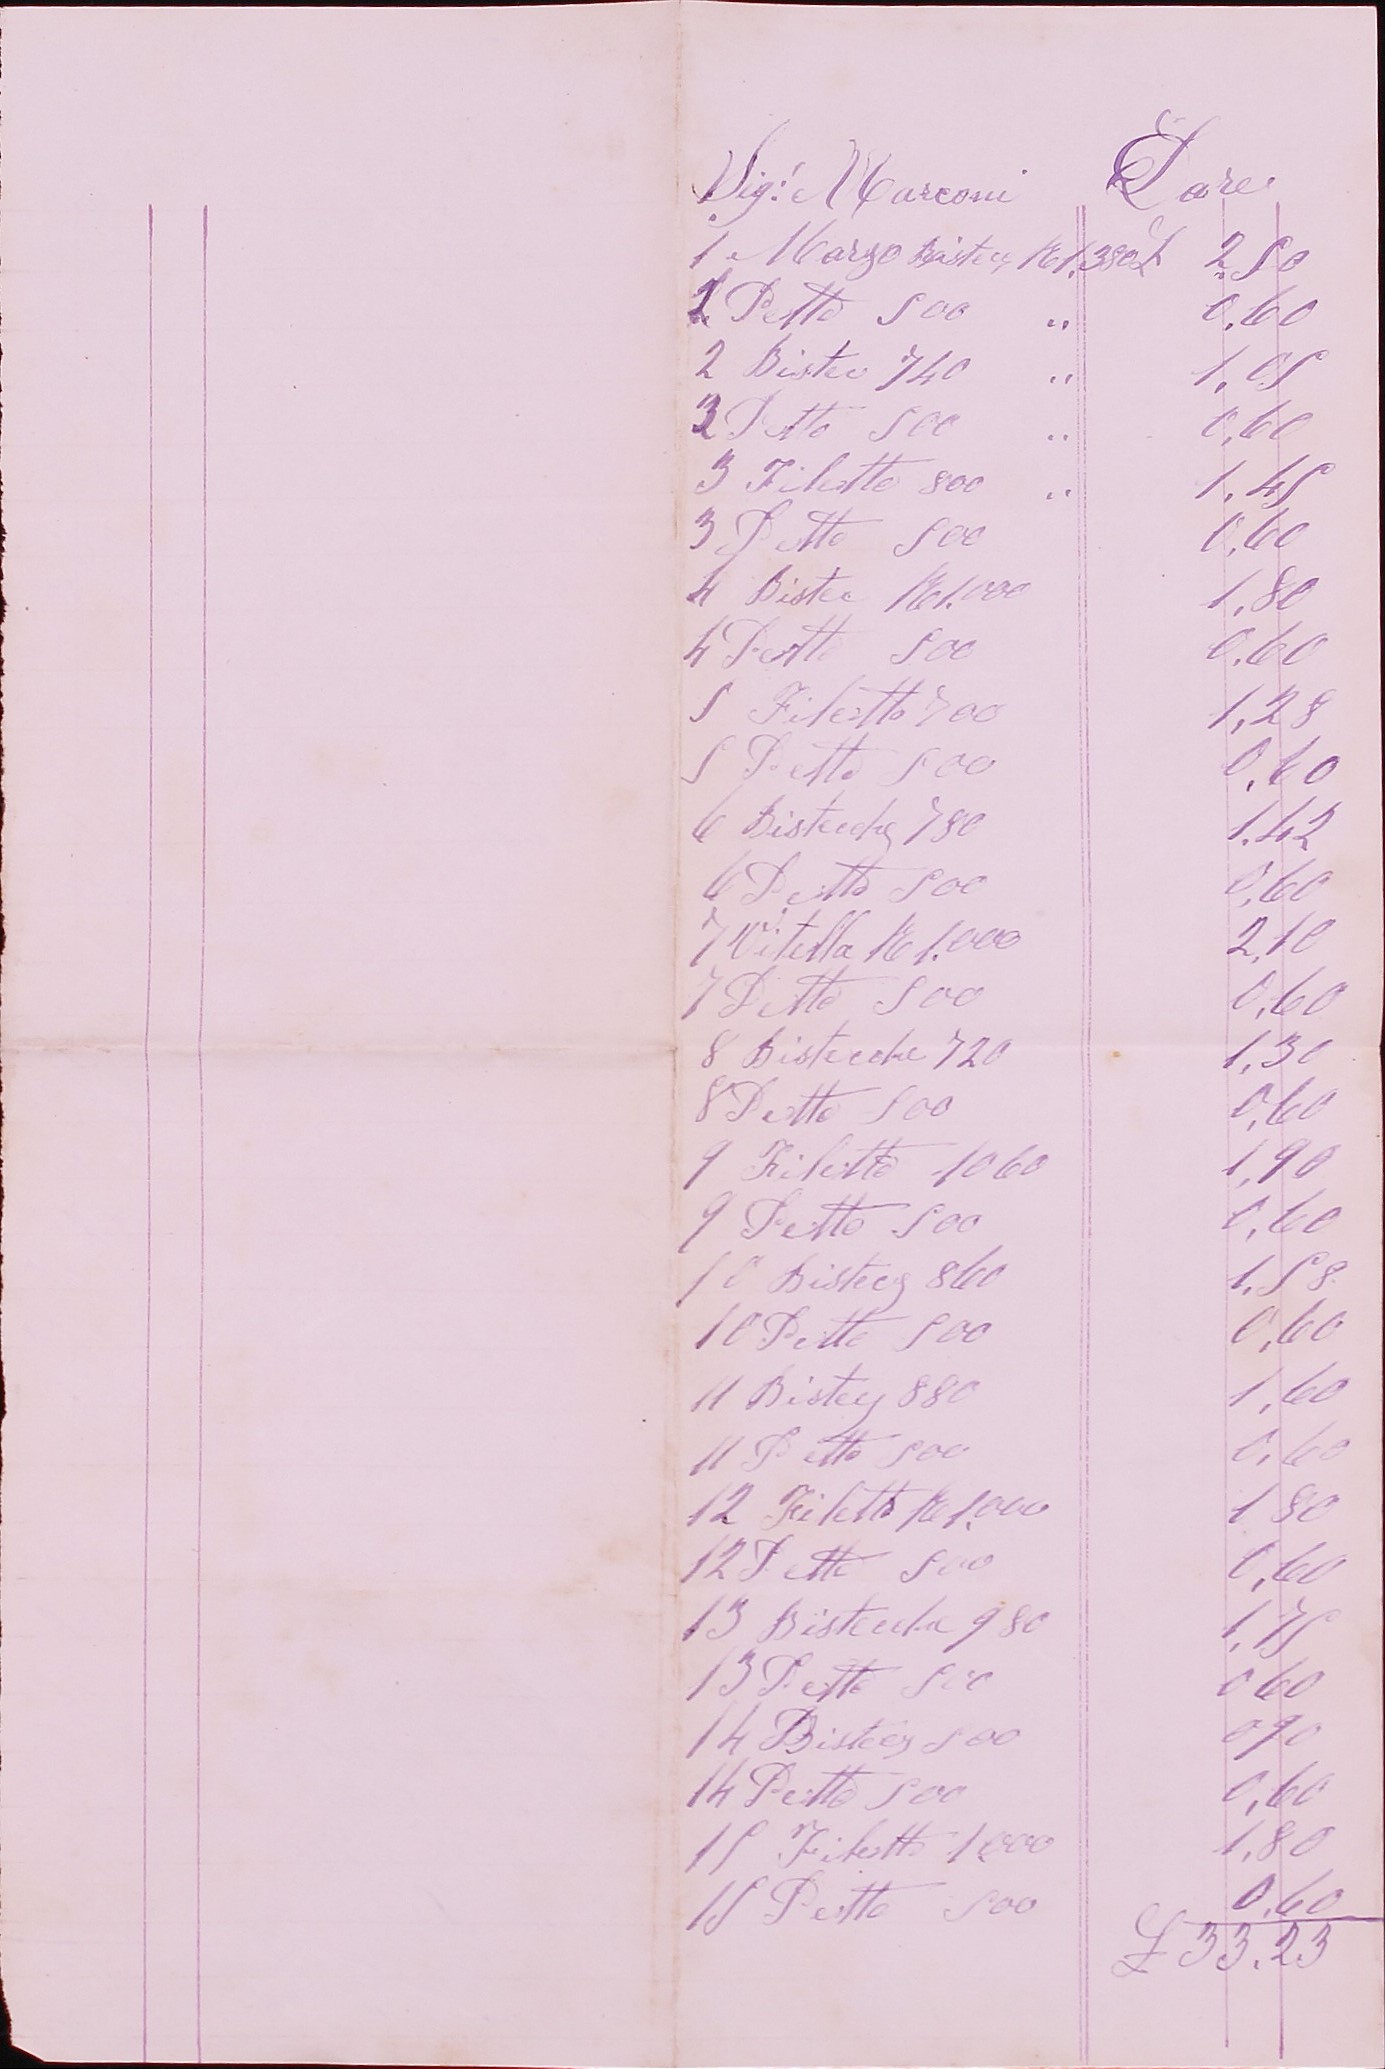 Sig.r Marconi Dare
1 Marzo Bistec K 1.380 £ 2.50
1 Petto 500 " 0.60
2 Bistec 740 " 1,05
2 Petto 500 " 0,60
3 Filetto 800 " 1.45
3 Petto 500 0.60
4 Bistec K 1.000 1,80
4 Petto 500 0.60
5 Filetto 700 1,28
5 Petto 500 0,60
6 Bistecche 780 1.42
6 Petto 500 0,60
7 Vitella K 1.000 2,10
7 Petto 500 0,60
8 Bistecche 720 1,30
8 Petto 500 0,60
9 Filetto 1060 1,90
9 Petto 500 0,60
10 Bistec 860 1.58
10 Petto 500 0,60
11 Bistec 880 1,60
11 Petto 500 0,60
12 Filetto K 1.000 1 80
12 Petto 500 0,60
13 Bistecche 980 1,75
13 Petto 500 0 60
14 Bistec 500 0 90
14 Petto 500 0,60
15 Filetto 1000 1,80
15 Petto 500 0,60
£ 33.23